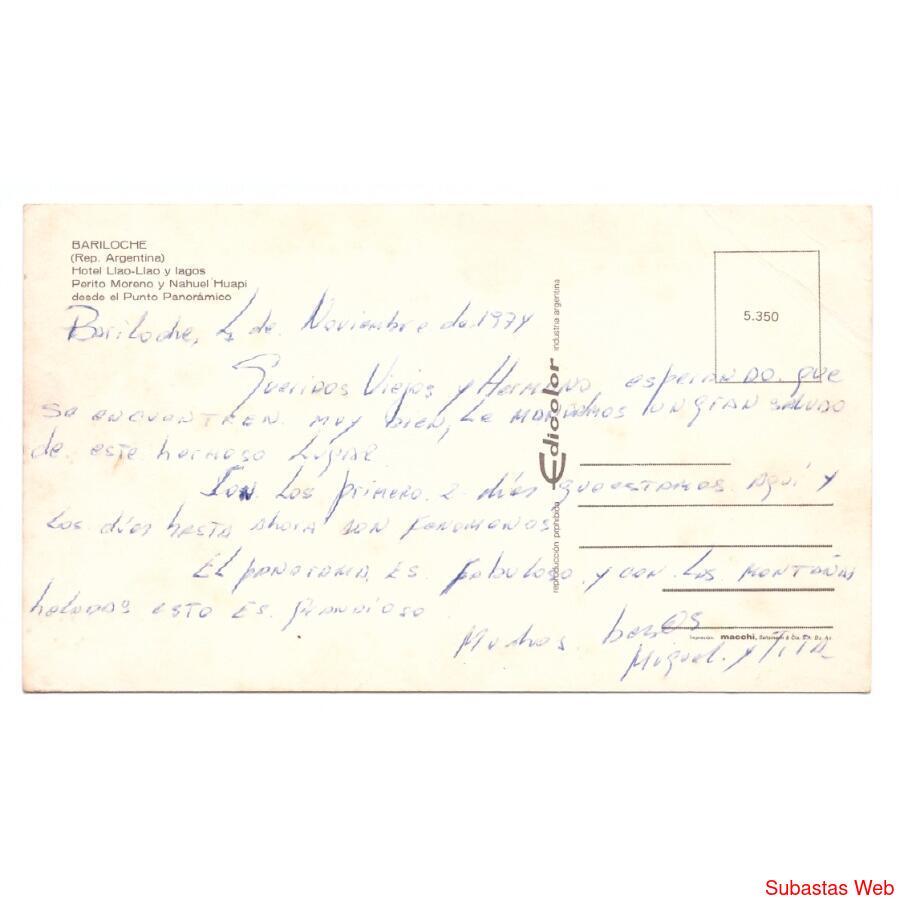 BARILOCHE
(Rep. Argentina)
Hotel Llao-Llao y lagos
Perito Moreno y Nahuel Huapi
desde el Punto Panorámico
Bariloche, 4 de Noviembre de 1974
Queridos Viejos y Hermano, esperando que
se encuentren muy bien, le mandamos un gran saludo
de este hermoso lugar.
Son los primero 2 días que estamos aquí y
los días hasta ahora son fenomenos
El panorama es fabuloso y con las montañas
heladas esto es grandioso
Muchos besos
Miguel y Tita
5.350
industria argentina
Edicolor
reproducción prohibida
Impresión macchi, & Cia. S.A. Bs. As.
Subastas Web